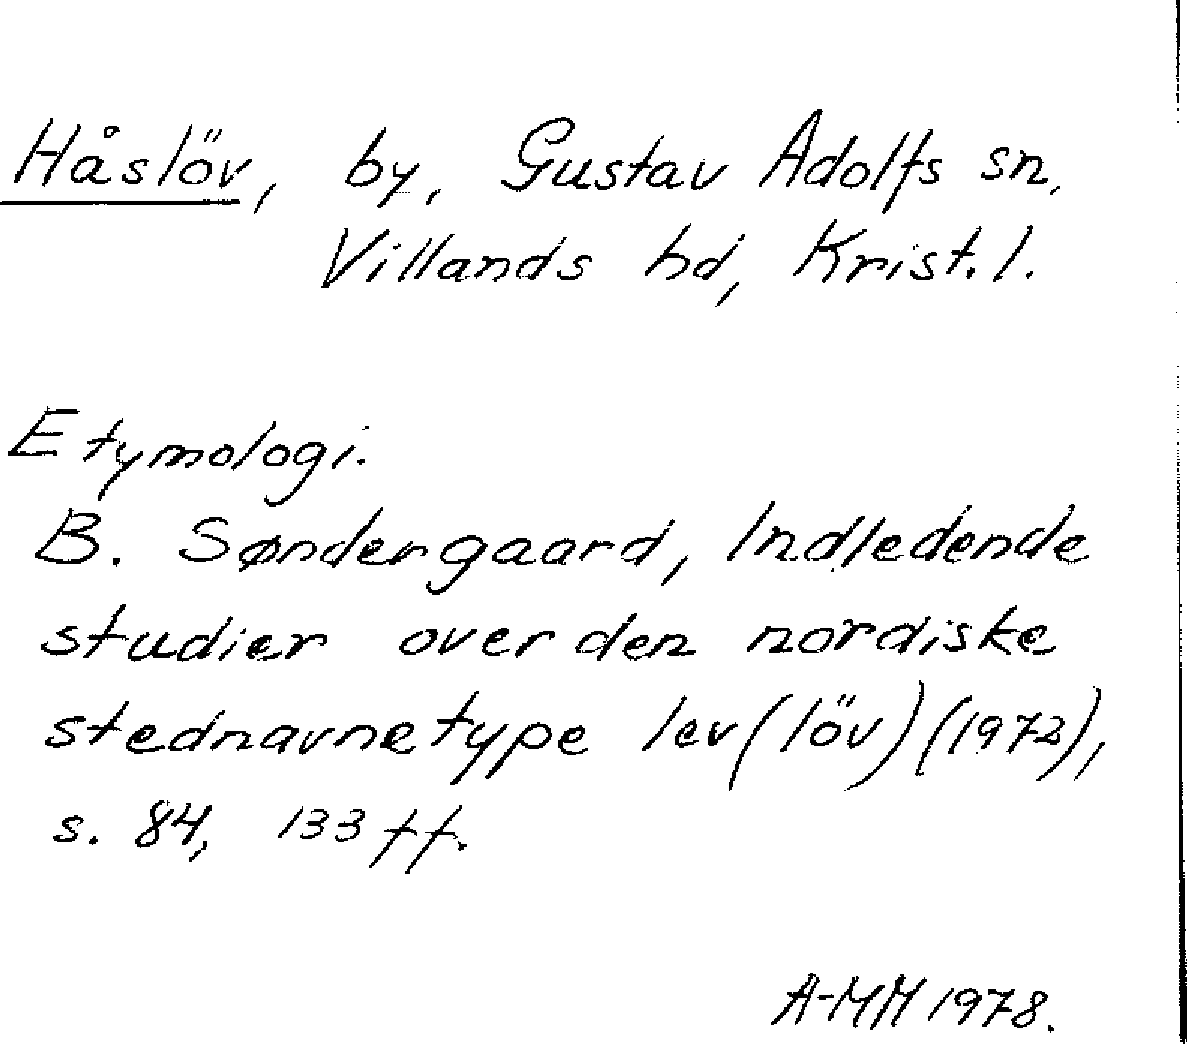 Håslöv, by, Gustav Adolfs sn,
Villands hd, Krist. l.
Etymologi.
B. Søndergaard, Indledende
studier over den nordiske
stednavnetype lev (löv) (1972),
s. 84, 133 ff.
A-MM 1978.